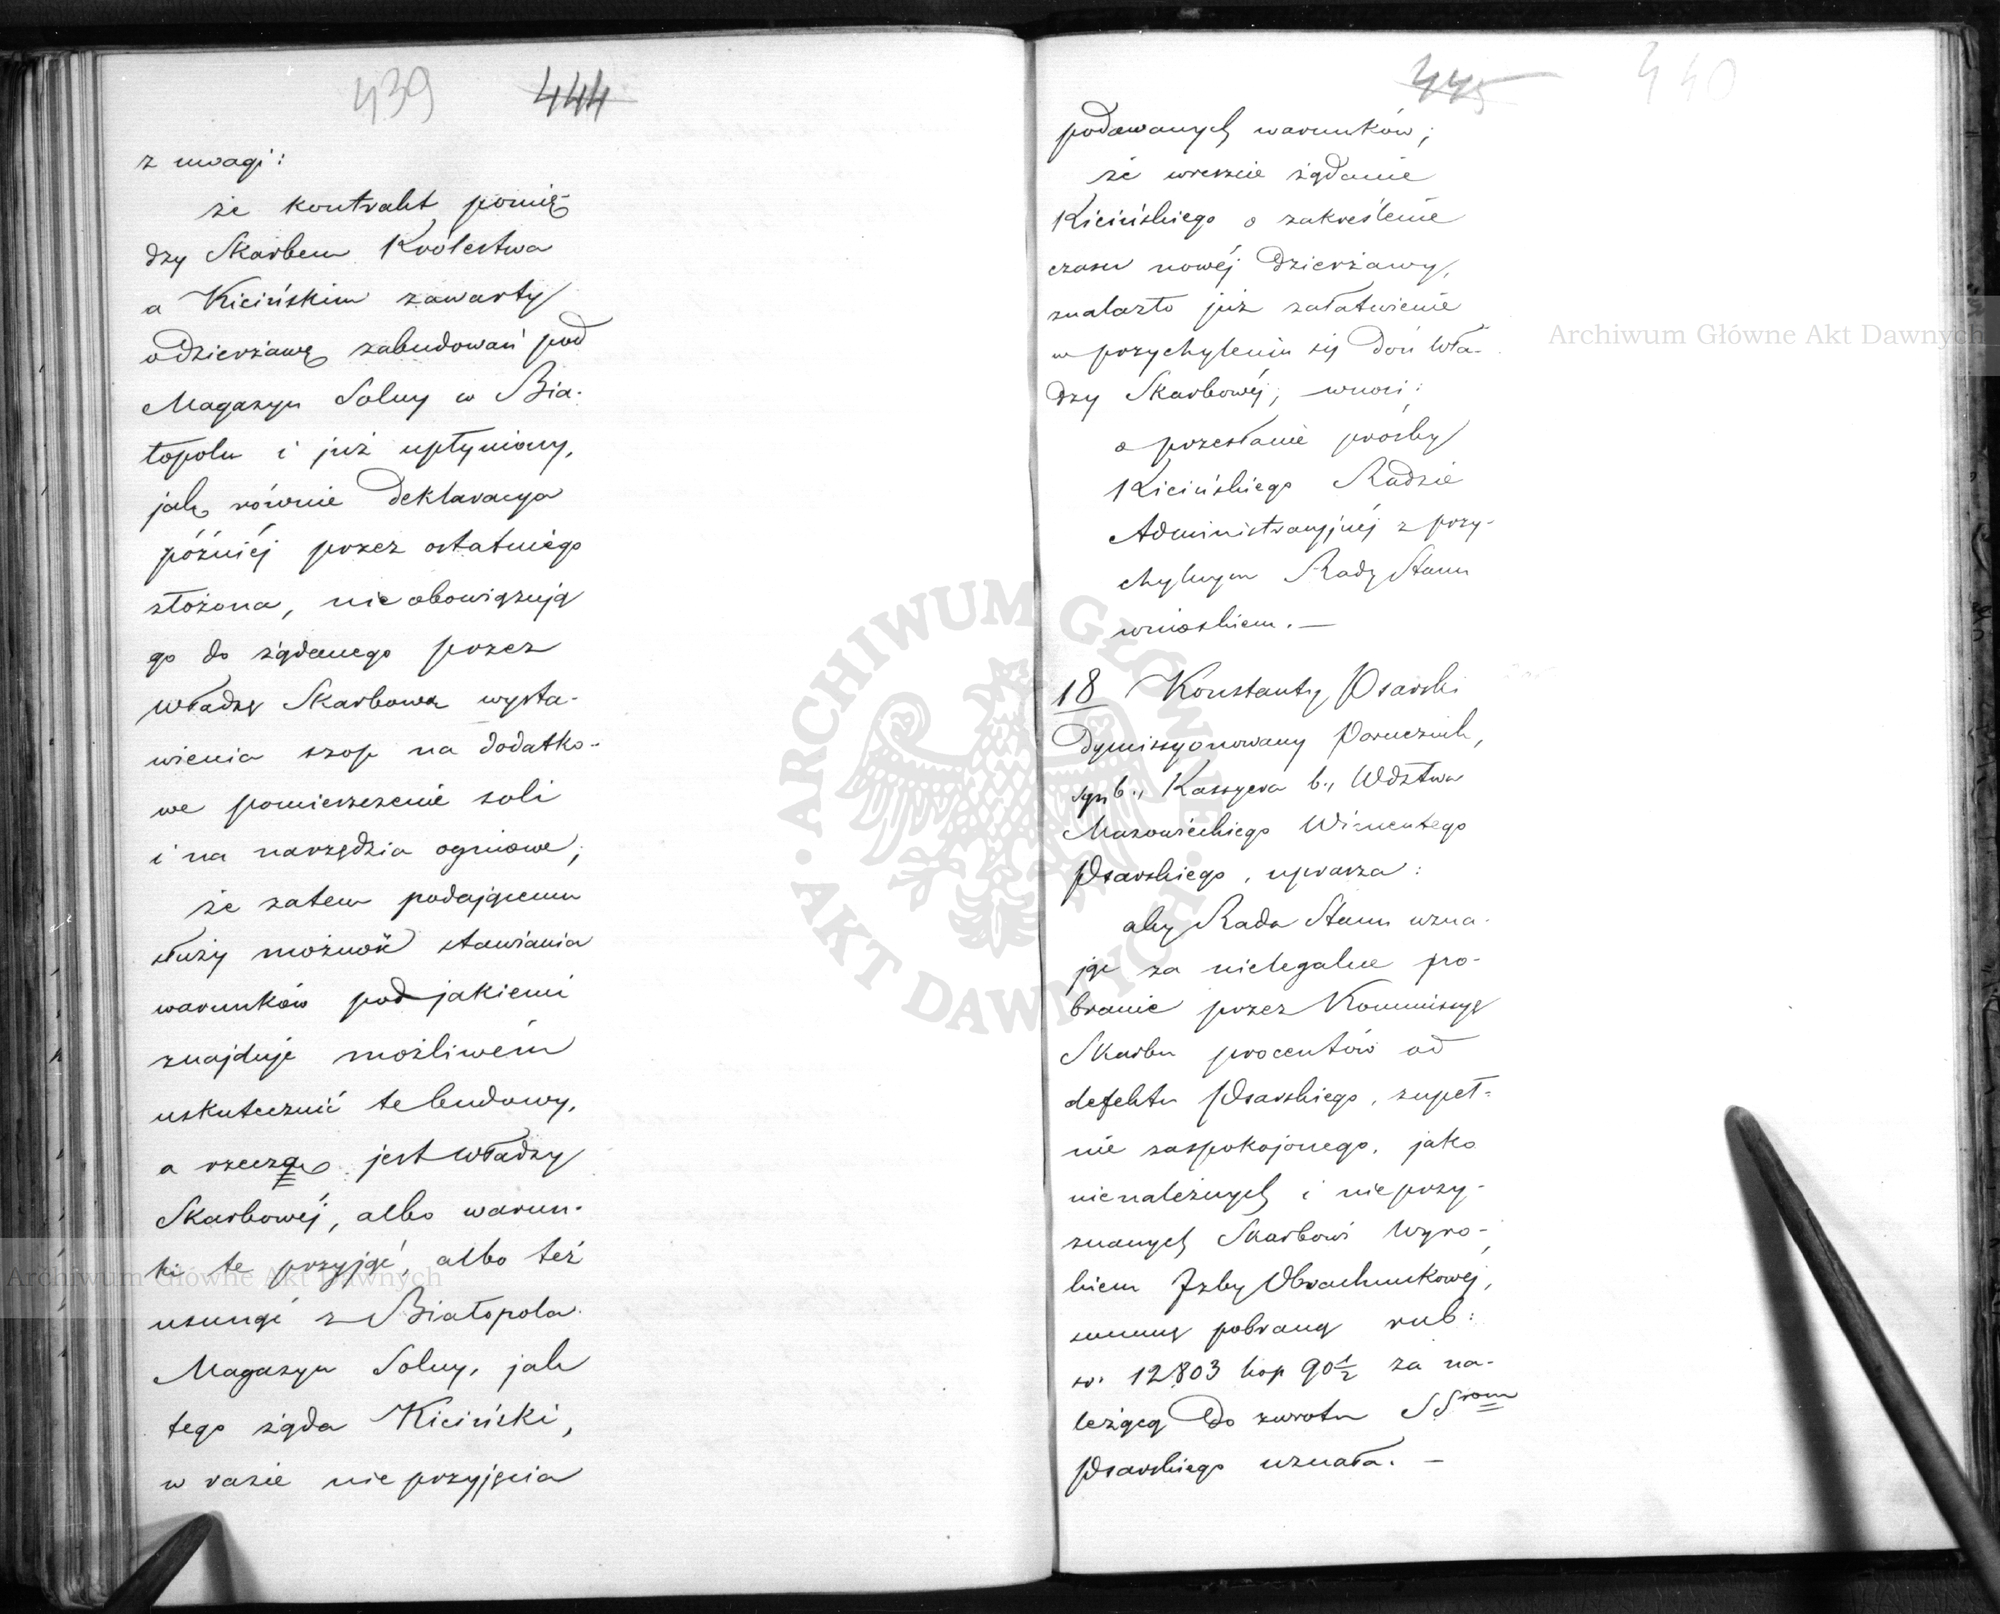 439 444
z uwagi:
że kontrakt pomię-
dzy Skarbem Królestwa
a Kicińskim zawarty
o dzierżawę zabudowań pod
Magazyn Solny w Bia-
łopolu i już upłyniony,
jak równie deklaracya
później przez ostatniego
złożona, nie obowiązują
go do żądanego przez
Władzę Skarbową wysta-
wienia szop na dodatko-
we pomieszczenie soli
i na narzędzia ogniowe;
że zatem podającemu
służy możność stawiania
warunków pod jakiemi
znajduje możliwém
uskutecznić te budowy,
a rzeczą jest Władzy
Skarbowéj, albo warun-
ki te przyjąć, albo też
usunąć z Białopola
Magazyn Solny, jak
tego żąda Kiciński,
w razie nie przyjęcia
445 440
podawanych warunków;
że wreszcie żądanie
Kicińskiego o zakreślenie
czasu nowéj dzierżawy,
znalazło już załatwienie
w przychyleniu się doń Wła-
dzy Skarbowéj; wnosi:
o przesłanie prośby
Kicińskiego Radzie
Administracyjnéj z przy-
chylnym Rady Stanu
wnioskiem. —
18 Konstanty Psarski
dymissyonowany Porucznik,
syn b., Kassyera b., Wdztwa
Mazowieckiego Wincentego
Psarskiego, uprasza:
aby Rada Stanu uzna-
jąc za nielegalne po-
branie przez Kommissyę
Skarbu procentów od
defektu Psarskiego, zupeł-
nie zaspokojonego, jako
nienależnych i nieprzy-
znanych Skarbowi Wyro-
kiem Izby Obrachunkowej,
summę pobraną rub:
sr. 12803 kop 90 1/2 za na-
leżącą do zwrotu SSrom
Psarskiego uznała. —
Archiwum Główne Akt Dawnych
Archiwum Główne Akt Dawnych
ARCHIWUM GŁÓWNE · AKT DAWNYCH ·